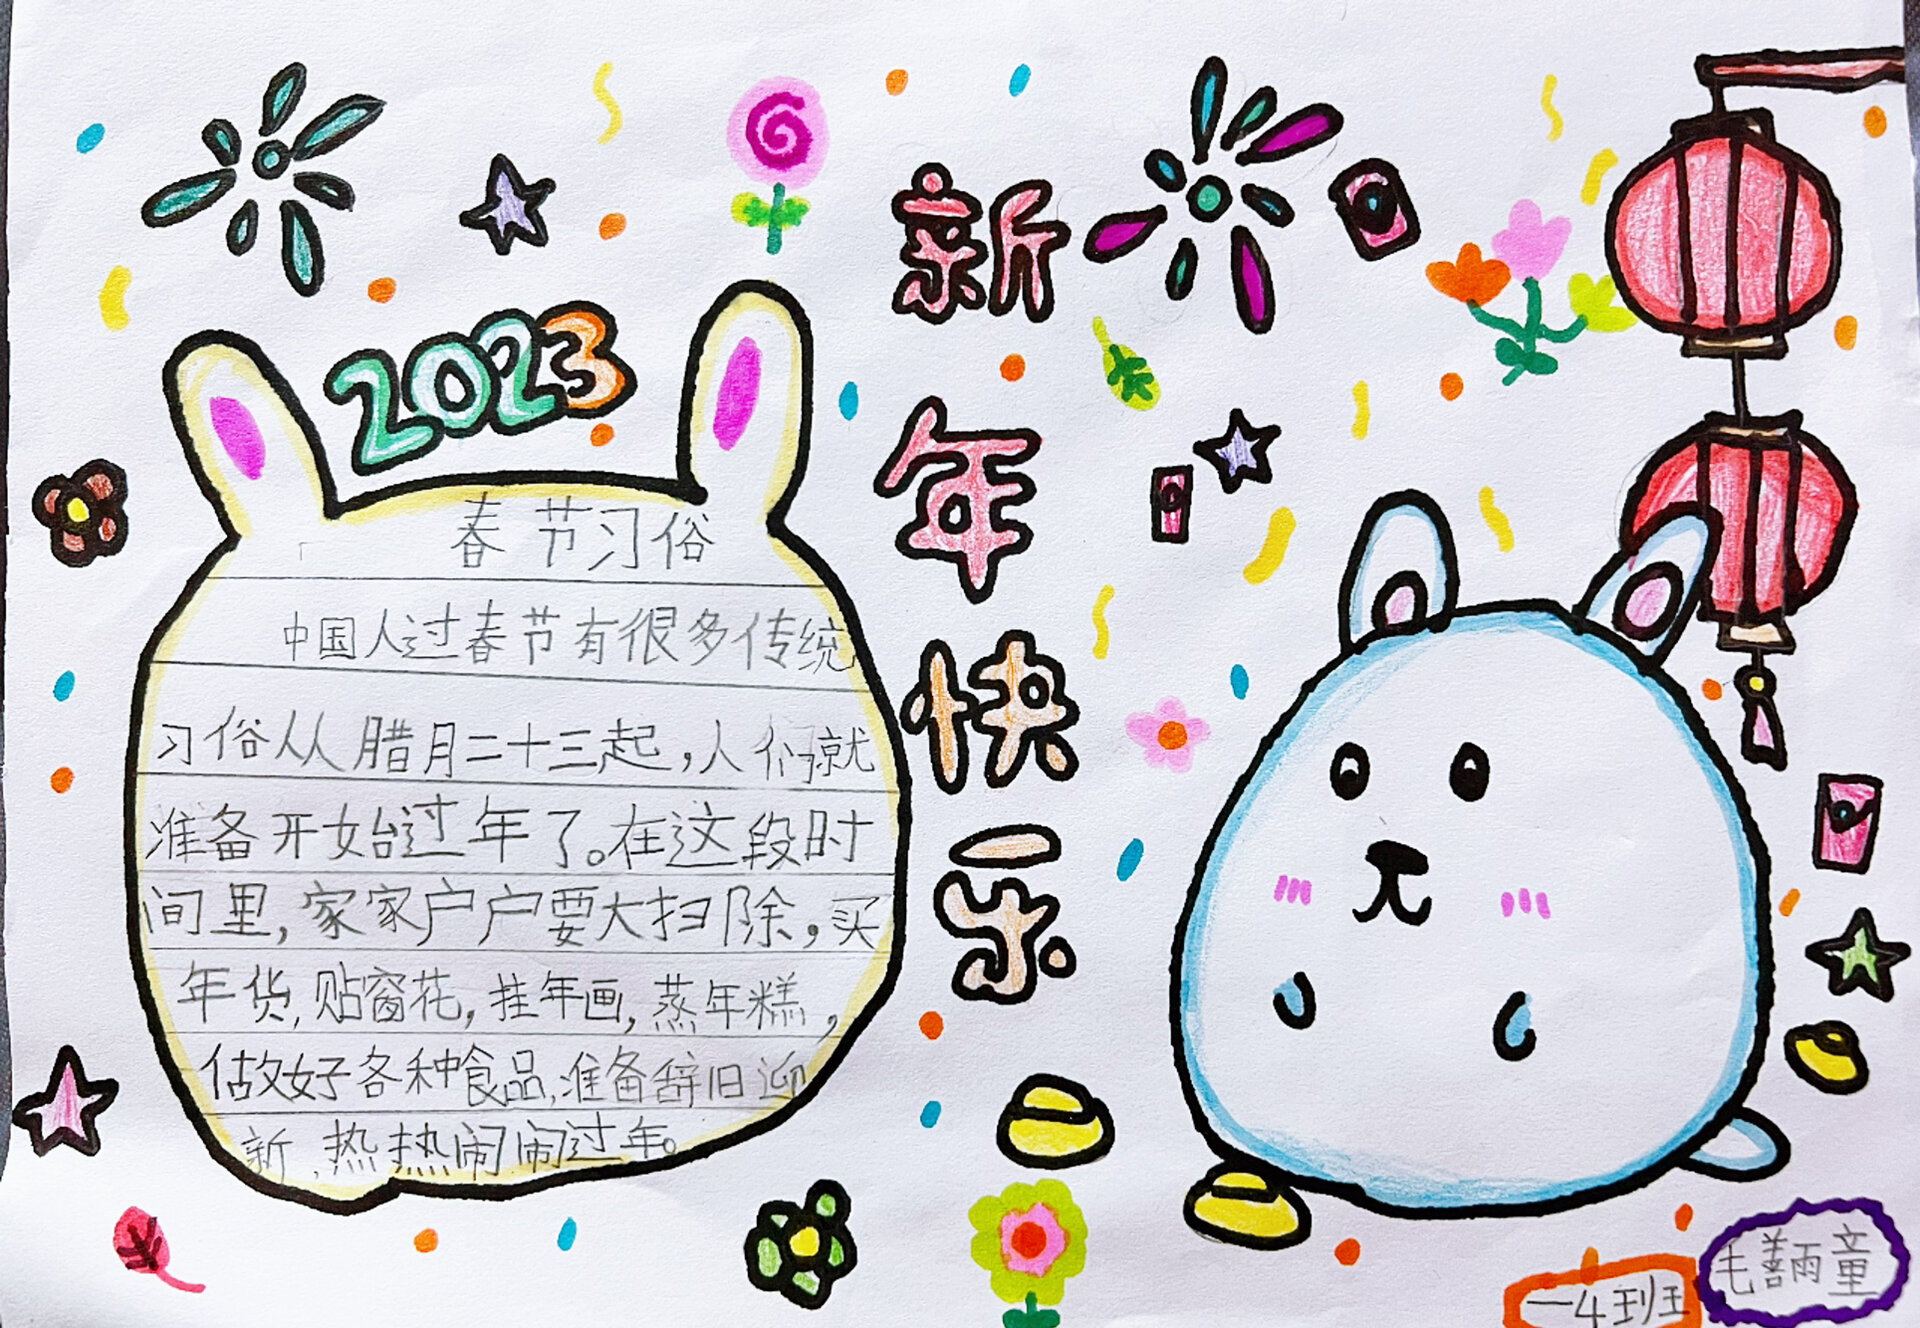 2023
春节习俗
中国人过春节有很多传统
习俗从腊月二十三起,人们就
准备开始过年了。在这段时
间里,家家户户要大扫除,买
年货,贴窗花,挂年画,蒸年糕,
做好各种食品,准备辞旧迎
新,热热闹闹过年。
新年快乐
一4班
毛善雨童